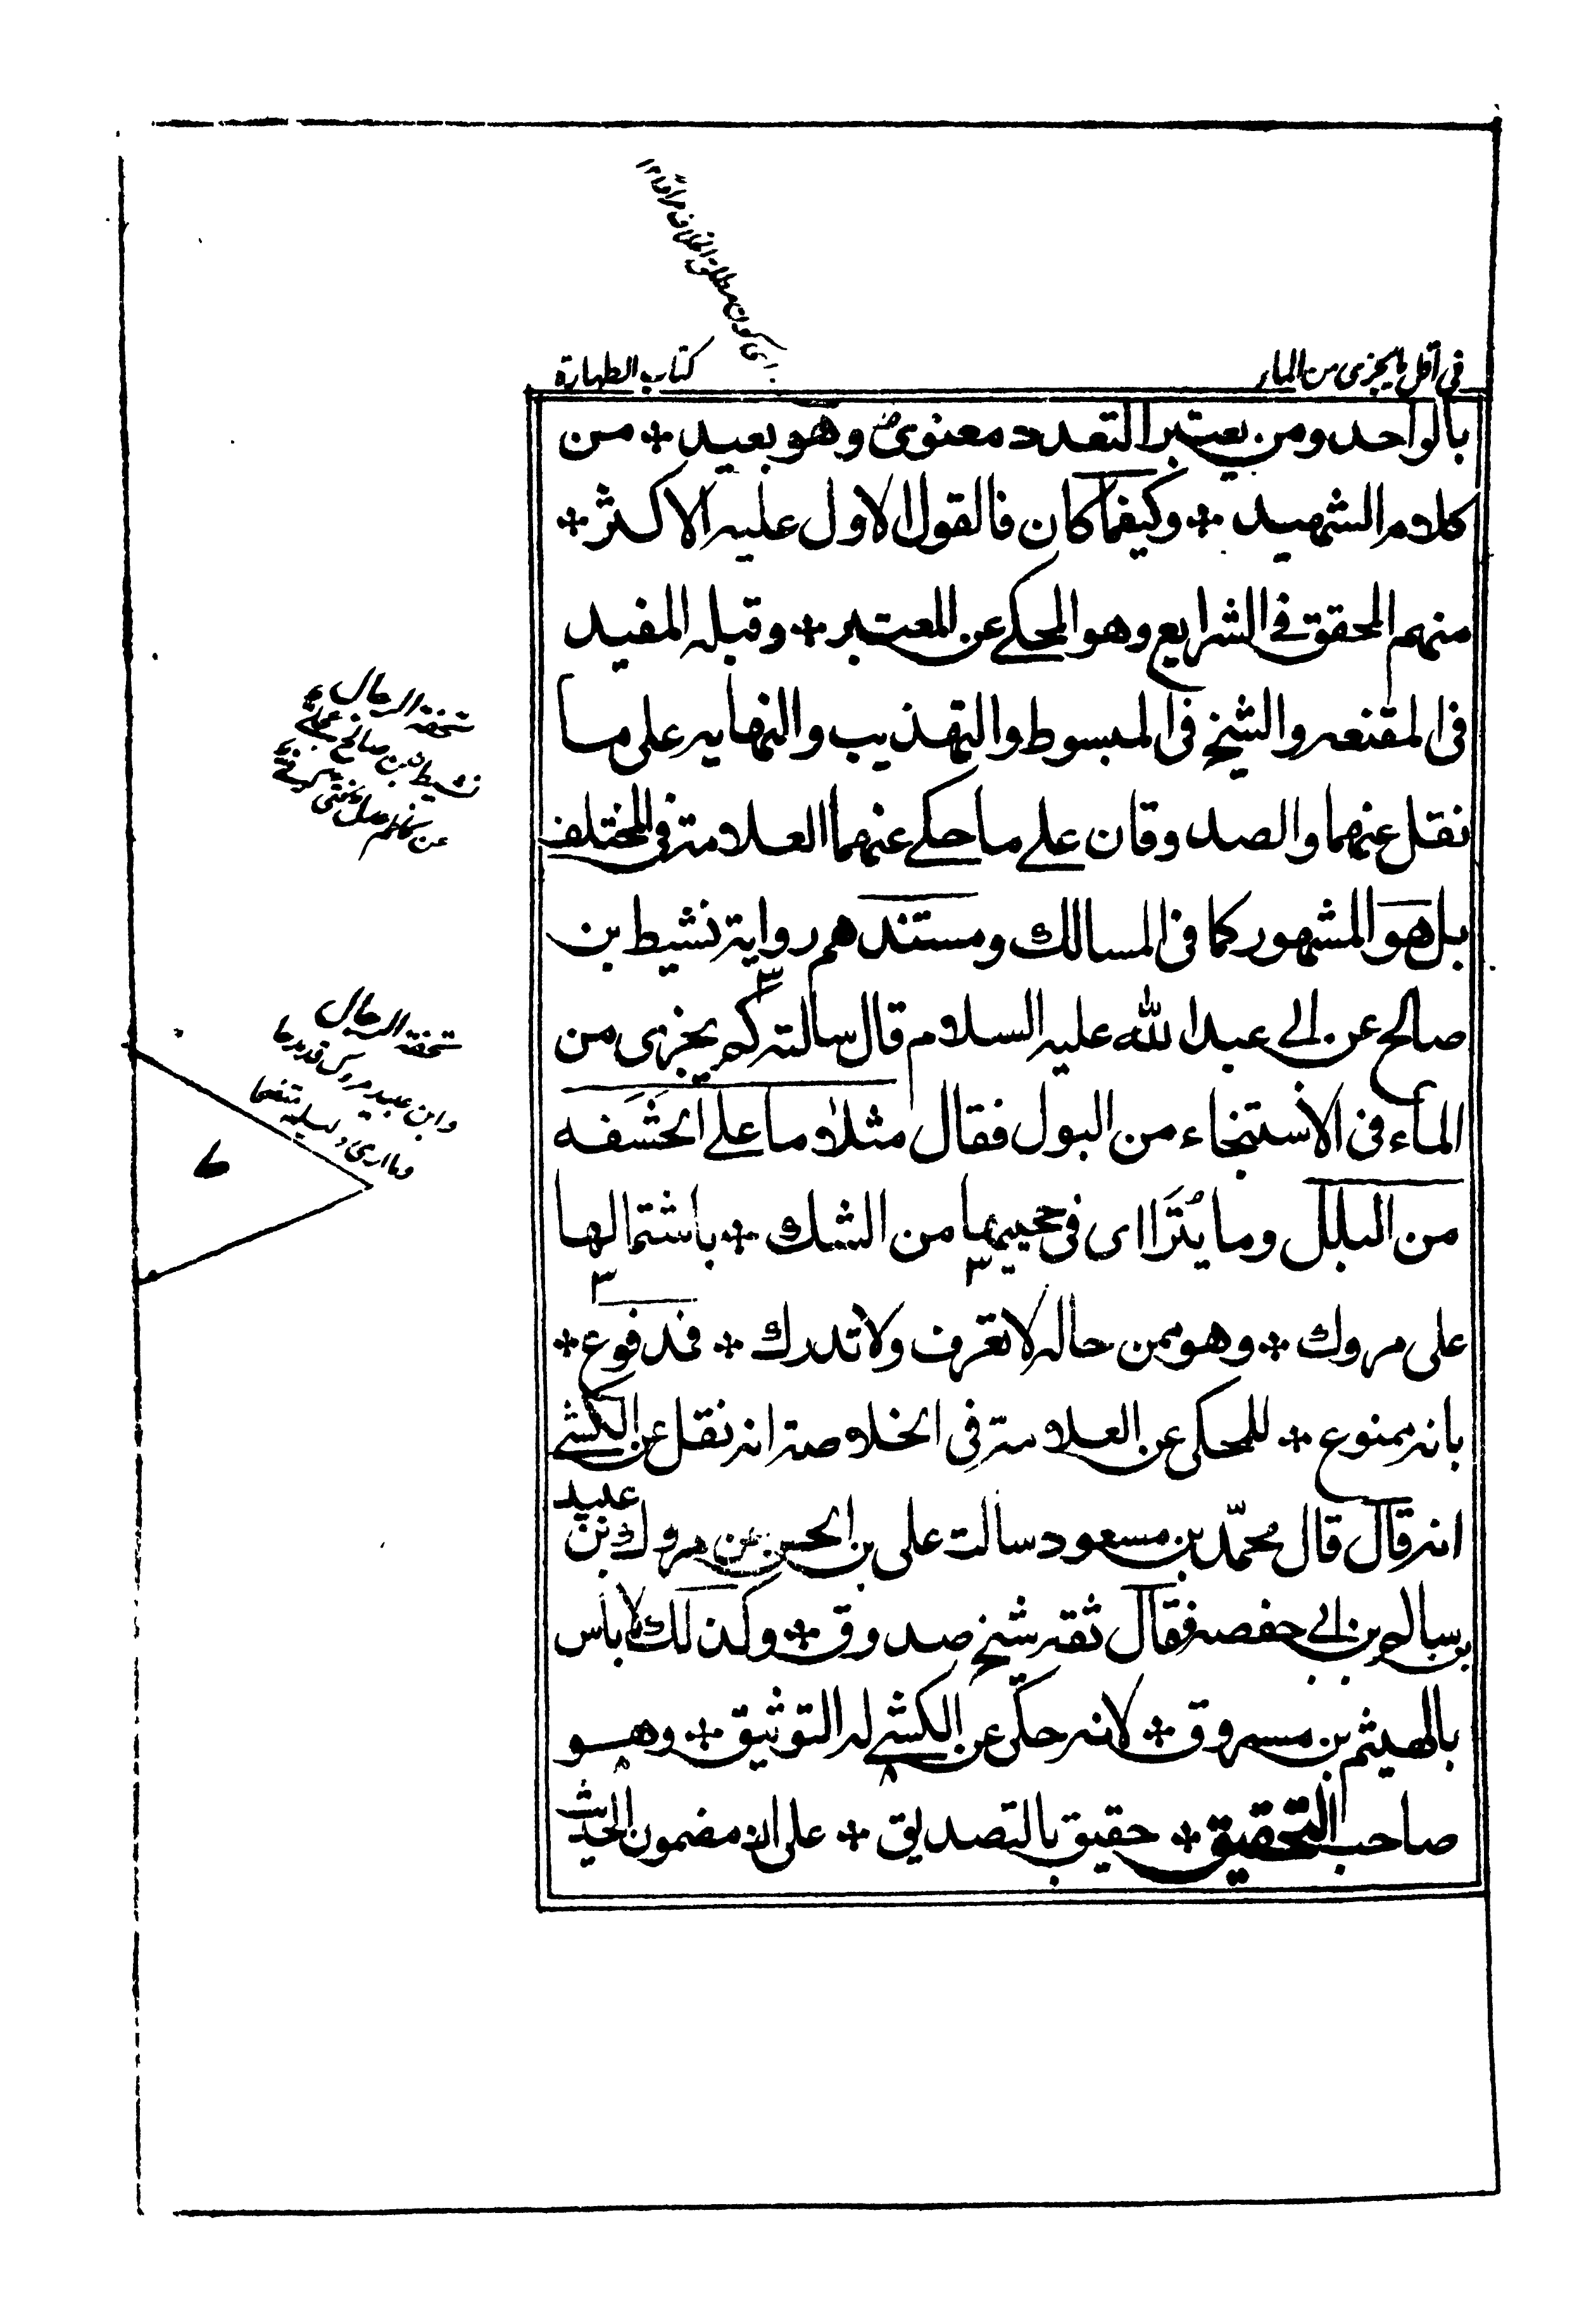 في اقل ما يجزى من الماء
كتاب الطهارة
بالواحد ومن يعتبر التعدد معنوى وهو بعيد * من
كلام الشهيد * وكيفما كان فالقول الاول عليه الاكثر *
منهم المحقق في الشرايع وهو المحكي عن المعتبر * وقبله المفيد
في المقنعه والشيخ في المبسوط والتهذيب والنهايه على ما
نقل عنهما والصدوقان علي ما حكي عنهما العلامة في المختلف
بل هو المشهور كما في المسالك ومستندهم رواية نشيط بن
صالح عن ابي عبد الله عليه السلام قال سالته كم يجزى من
الماء في الاستنجاء من البول فقال مثلا ما علي الحَشَفه
من البلل وما يُتَرَااى في
من الشك * باشتمالها
على مروك * وهو ممن حاله لا تعرف ولا تدرك * فمدفوع *
بانه ممنوع * للمحكى عن العلامة في الخلاصة انه نقل عن الكشي
انه قال قال محمّد بن مسعود سالت على بن الحسن عن مروك بن عبيد
بن سالم بن ابي حفصه فقال ثقة شيخ صدوق * وكذلك لا باس
بالهيثم بن مسروق * لانه حكى عن الكشي له التوثيق * وهو
صاحب التحقيق * حقيق بالتصديق * على ان مضمون الحديث
تحفة الرجال
نشيط بن صالح
تحفة الرجال
وابن عبيد مروك